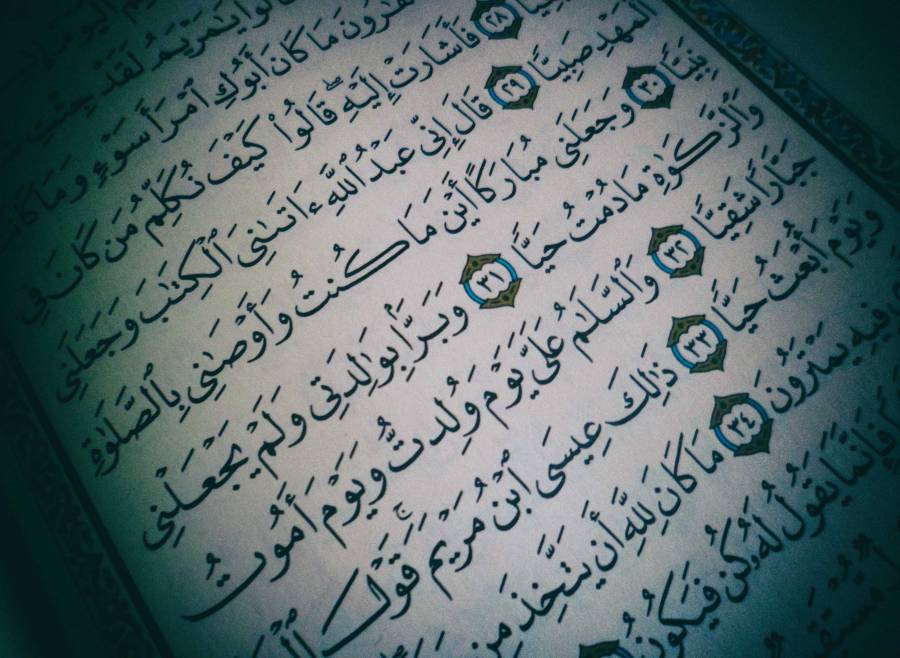 قَالُوا۟ يَٰمَرْيَمُ لَقَدْ جِئْتِ
هَٰرُونَ مَا كَانَ أَبُوكِ ٱمْرَأَ سَوْءٍ وَمَا كَانَتْ
٢٨ فَأَشَارَتْ إِلَيْهِ ۖ قَالُوا۟ كَيْفَ نُكَلِّمُ مَن كَانَ فِي
ٱلْمَهْدِ صَبِيًّا ٢٩ قَالَ إِنِّي عَبْدُ ٱللَّهِ ءَاتَىٰنِيَ ٱلْكِتَٰبَ وَجَعَلَنِي
نَبِيًّا ٣٠ وَجَعَلَنِي مُبَارَكًا أَيْنَ مَا كُنتُ وَأَوْصَٰنِي بِٱلصَّلَوٰةِ
وَٱلزَّكَوٰةِ مَا دُمْتُ حَيًّا ٣١ وَبَرًّۢا بِوَٰلِدَتِي وَلَمْ يَجْعَلْنِي
جَبَّارًا شَقِيًّا ٣٢ وَٱلسَّلَٰمُ عَلَيَّ يَوْمَ وُلِدتُّ وَيَوْمَ أَمُوتُ
وَيَوْمَ أُبْعَثُ حَيًّا ٣٣ ذَٰلِكَ عِيسَى ٱبْنُ مَرْيَمَ ۚ قَوْلَ
فِيهِ يَمْتَرُونَ ٣٤ مَا كَانَ لِلَّهِ أَن يَتَّخِذَ مِن
فَإِنَّمَا يَقُولُ لَهُۥ كُن فَيَكُونُ